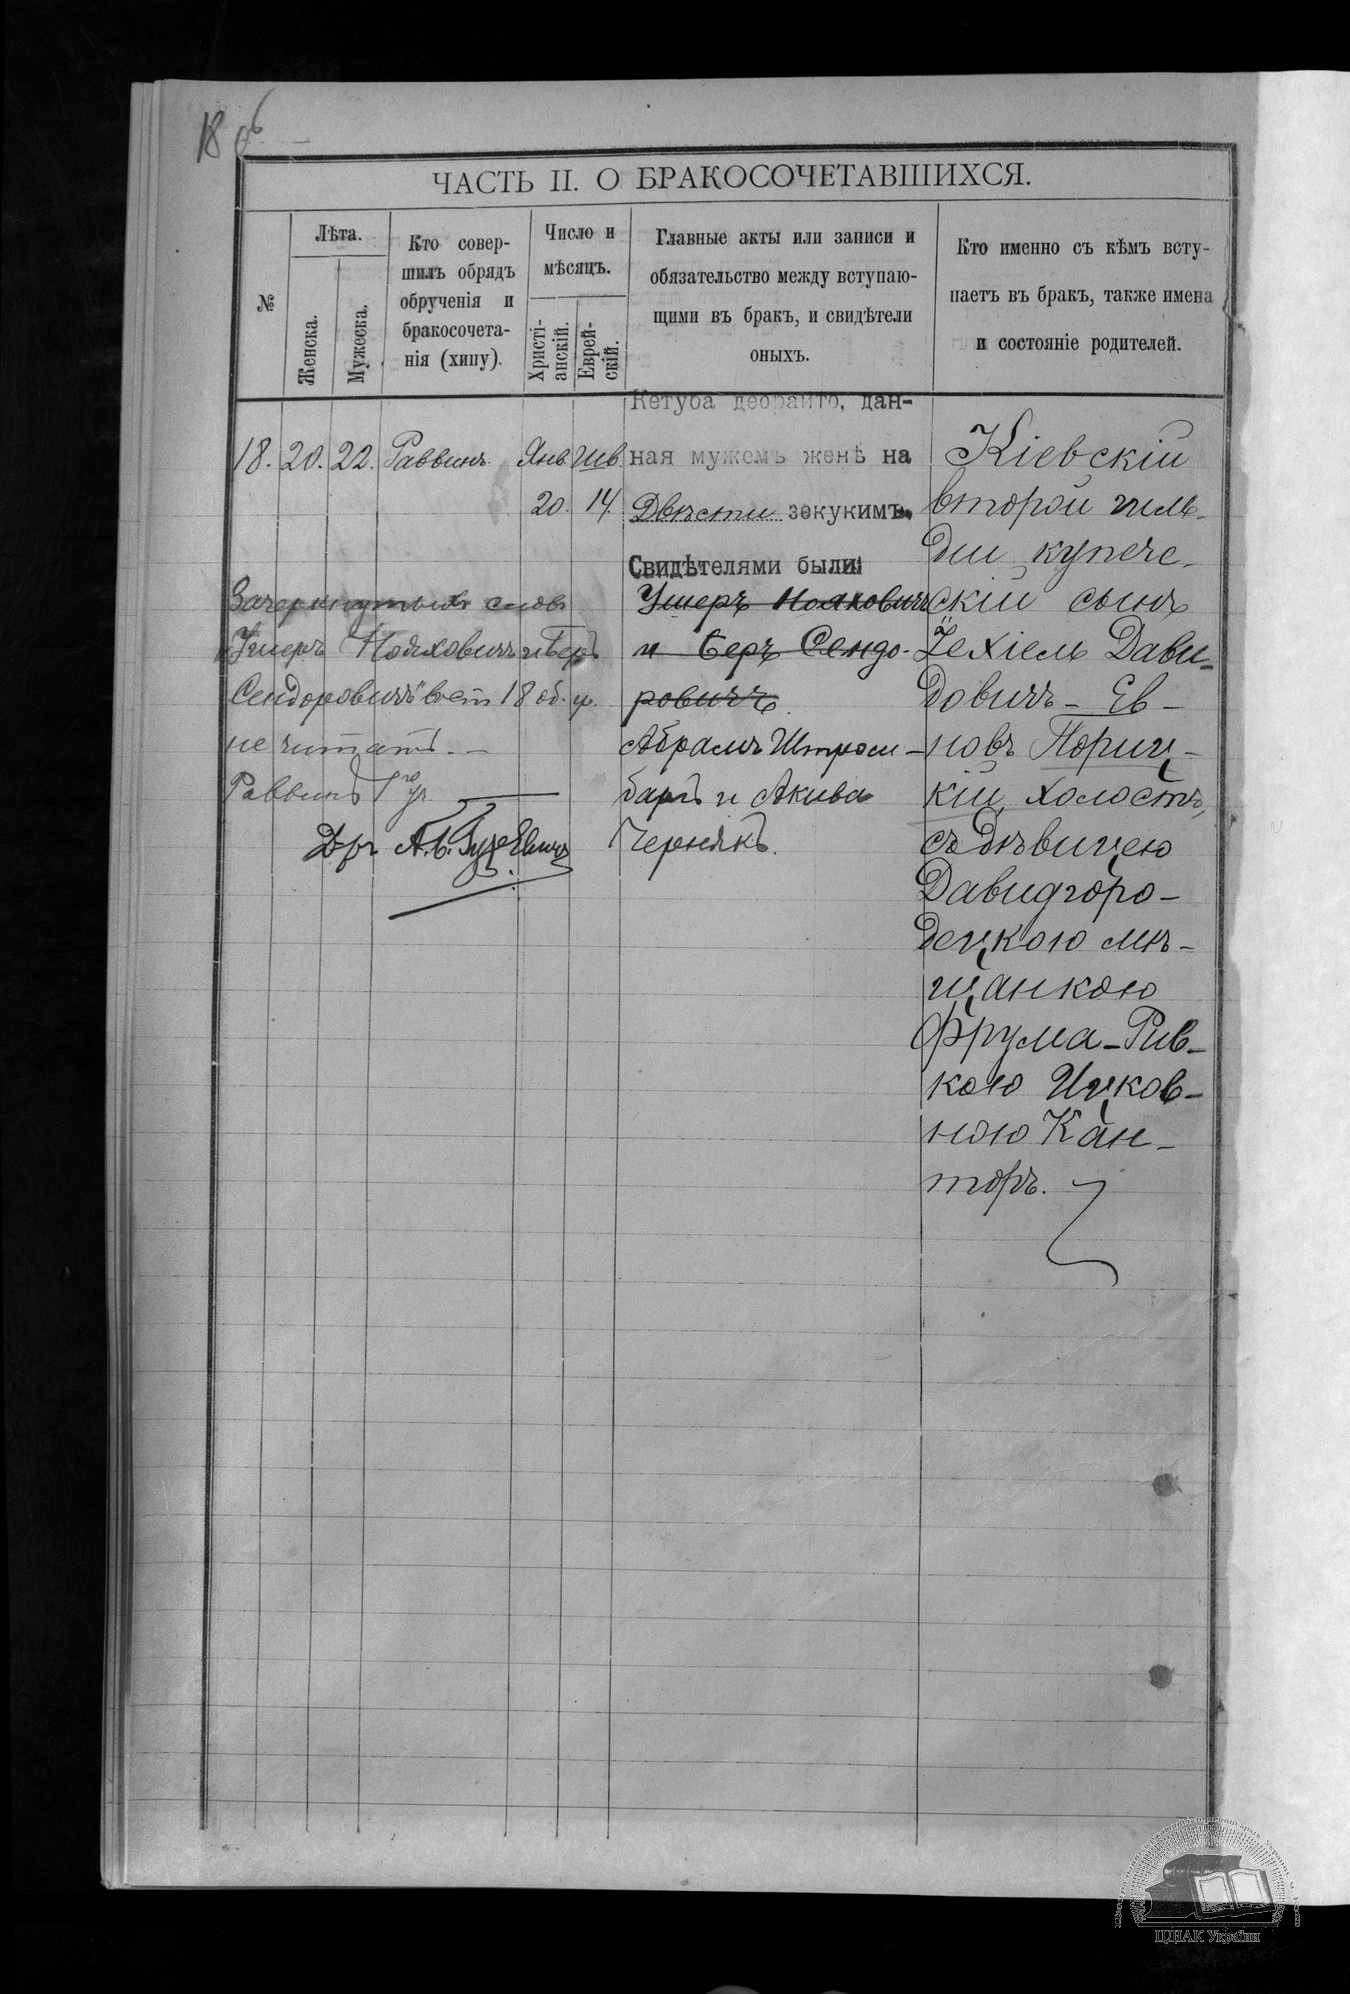 18 об
ЧАСТЬ II. О БРАКОСОЧЕТАВШИХСЯ.
№
Лѣта.
Женска.
Мужеска.
Кто совер-
шилъ обрядъ
обрученія и
бракосочета-
нія (хипу).
Число и
мѣсяцъ.
Христі-
анскій.
Еврей-
скій.
Главные акты или записи и
обязательство между вступаю-
щими въ бракъ, и свидѣтели
оныхъ.
Кто именно съ кѣмъ всту-
паетъ въ бракъ, также имена
и состояніе родителей.
18. 20. 22. Раввинъ. Янв. Шв.
20. 14.
Кетуба деорайто, дан-
ная мужемъ женѣ на
Двѣсти зекукимъ.
Свидѣтелями были:
Ушеръ Нояховичъ
и Беръ Сендо-
ровичъ.
Абрамъ Штром-
баргъ и Акива
Чернякъ.
Кіевскій
второй гиль-
діи купече-
скій сынъ
Іехіель Дави-
довичъ - Ев-
новъ Вориц-
кій, холостъ,
съ дѣвицею
Давидгоро-
децкою мѣ-
щанкою
Фрума-Рив-
кою Ицков-
ною Кан-
торъ.
Зачеркнутыхъ словъ
"Ушеръ Нояховичъ и Беръ
Сендоровичъ" вст 18 об. гр.
не читать. —
Раввинъ
Д-ръ А. Б. Гуревичъ
ЦДІАК України